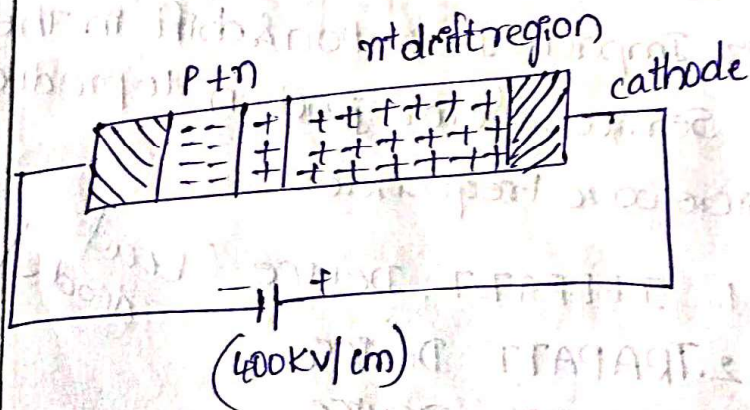 n+ drift region
P + n
cathode
- - + + + + + + +
- - + + + + + + +
- - + + + + + + +
- -
- +
(400KV/cm)